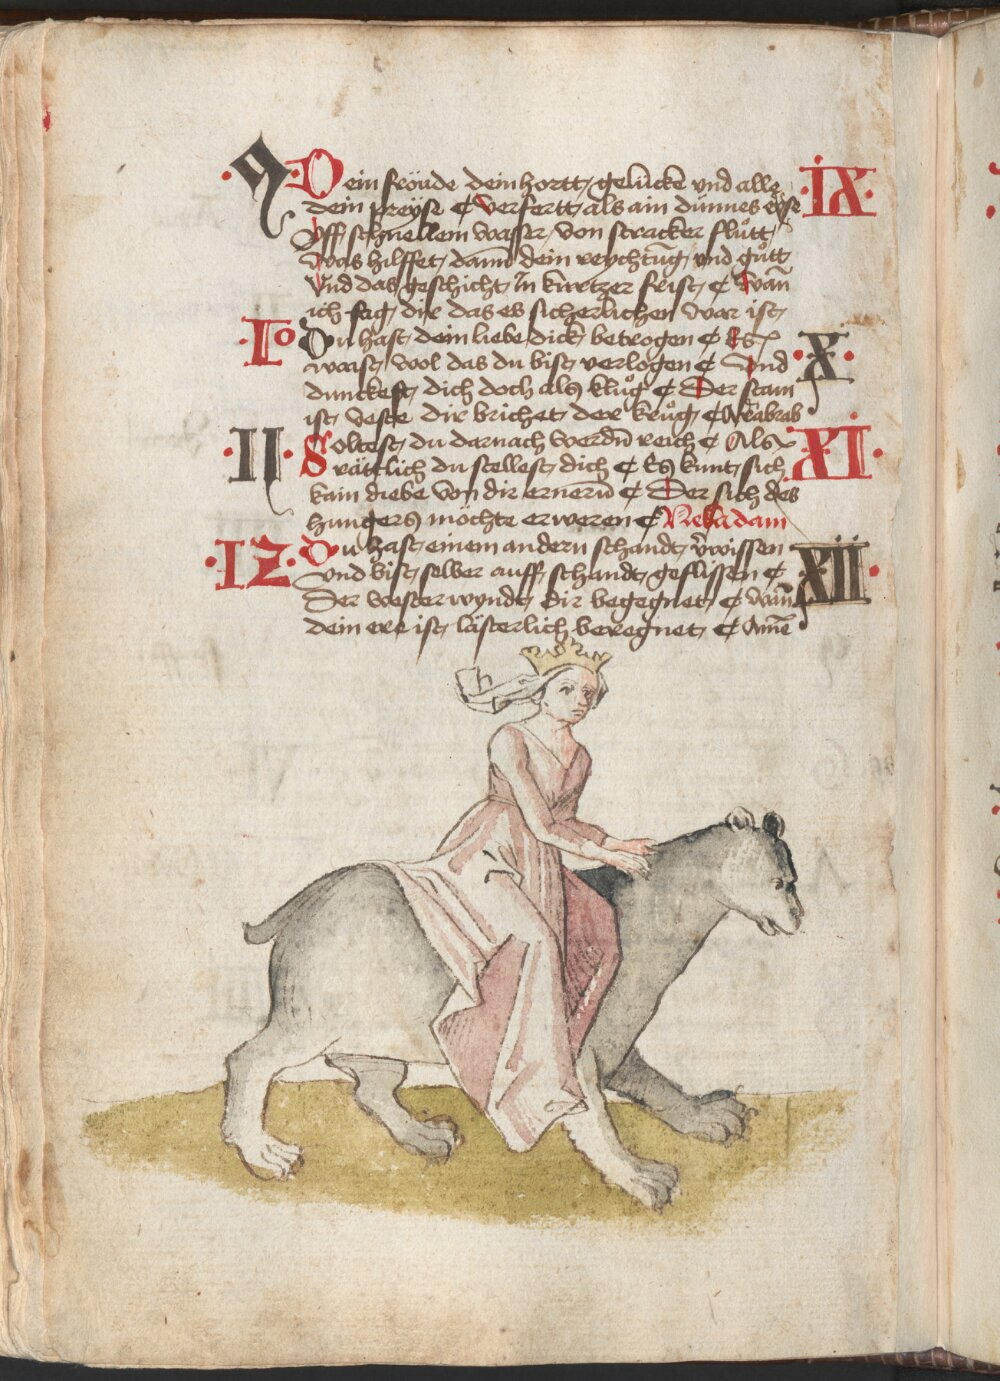 9 Dein fröude dein hortt gelücke und alle IX
dein preyse Verfertt als ain dünnes eyse
Uff schnellem wasser von stracker fluͦtt
Was hilffet dann dein reychtu̅g und guͦtt
Und das geschicht in kurtzer frist Wan̅
ich sag dir das es sicherlichen war ist
10 Du hast dein liebe dick betrogen Es X
waist wol das du bist verlogen Und
dunckest dich doch als kluͦg Der stain
ist veste dir brichet der kruͦg
11 Soltest du darnach werdn̅ reich Als XI
rättlich du stellest dich Es kunt sich
kain diebe von dir ernern̅ Der sich des
hungers möchte erweren
12 Du hast einem andern schandt v̾wissen XII
und bist selber auff schandt geflissen
Der wester wyndt dir begegnet wan̅
dein ere ist lästerlich beregnet Ame̅